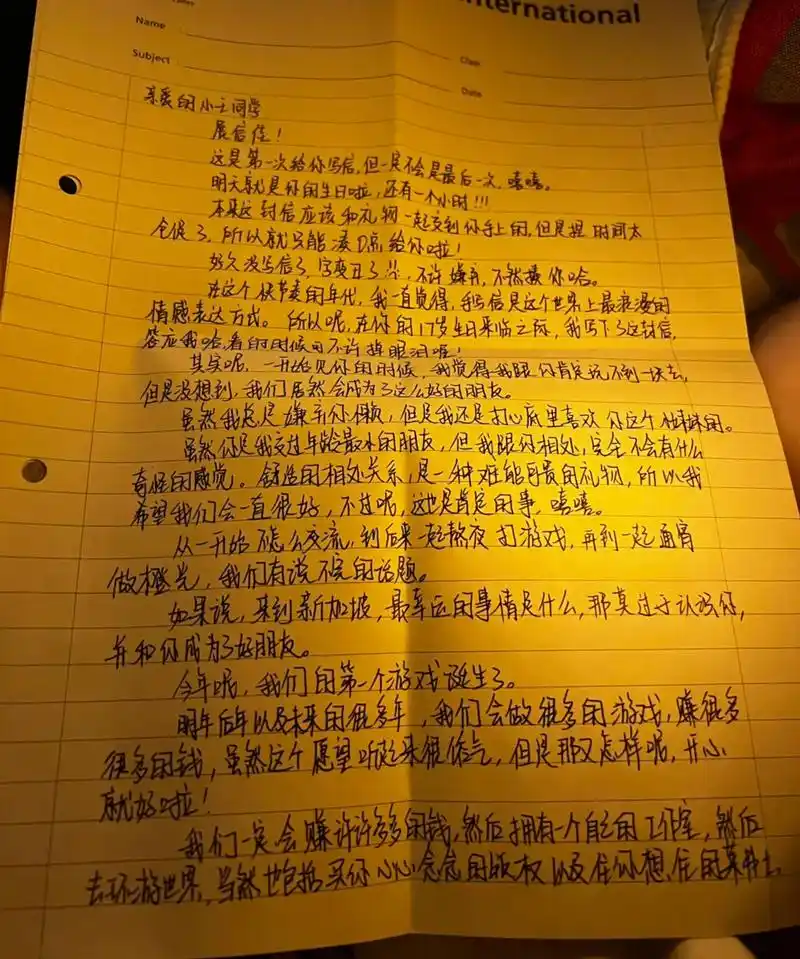 International
Name
Class
Subject
Date
亲爱的小王同学
展信佳！
这是第一次给你写信,但一定不会是最后一次,嘻嘻。
明天就是你的生日啦,还有一个小时!!!
本来这封信应该和礼物一起交到你手上的,但是 时间太
仓促了,所以就只能 给你啦!
好久没写信了,字变丑了,不许嫌弃,不然揍你哈。
在这个快节奏的年代,我一直觉得,写信是这个世界上最浪漫的
情感表达方式。所以呢,在你的17岁生日来临之际,我写下了这封信,
答应我哈,看的时候可不许掉眼泪喔!
其实呢,一开始见你的时候,我觉得我跟你肯定说不到一块去,
但是没想到,我们居然会成为了这么好的朋友。
虽然我总是嫌弃你懒,但是我还是打心底里喜欢你这个 的。
虽然你是我交过年龄最小的朋友,但我跟你相处,完全不会有什么
奇怪的感觉。舒适的相处关系,是一种难能可贵的礼物,所以我
希望我们会一直很好,不过呢,这也是肯定的事,嘻嘻。
从一开始不怎么交流,到后来一起熬夜打游戏,再到一起通宵
做橙光,我们有说不完的话题。
如果说,来到新加坡,最幸运的事情是什么,那莫过于认识你,
并和你成为了好朋友。
今年呢,我们的第一个游戏诞生了。
明年后年以及未来的很多年,我们会做很多的游戏,赚很多
很多的钱,虽然这个愿望听起来很俗气,但是那又怎样呢,开心
就好啦!
我们一定会赚许许多多的钱,然后拥有一个自己的工作室,然后
去环游世界,当然也包括买你心心念念的版权以及住你想住的莱弗士